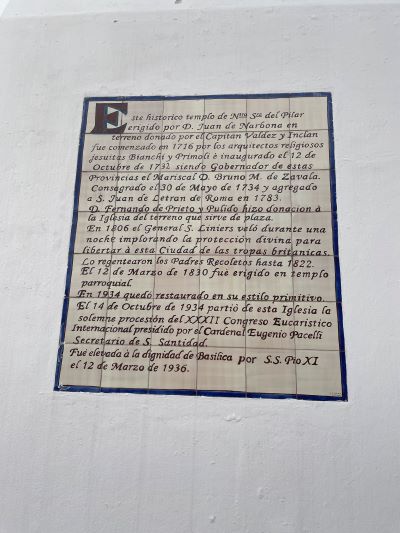 Este historico templo de Ntra Sra del Pilar
erigido por D. Juan de Narbona en
terreno donado por el Capitan Valdez y Inclan
fue comenzado en 1716 por los arquitectos religiosos
jesuitas Bianchi y Primoli è inaugurado el 12 de
Octubre de 1732 siendo Gobernador de estas
Provincias el Mariscal D. Bruno M. de Zavala.
Consagrado el 30 de Mayo de 1734 y agregado
a S. Juan de Letran de Roma en 1783.
D. Fernando de Prieto y Pulido hizo donación à
la Iglesia del terreno que sirve de plaza.
En 1806 el General S. Liniers veló durante una
noche implorando la protección divina para
libertar à esta Ciudad de las tropas britanicas.
Lo regentearon los Padres Recoletos hasta 1822.
El 12 de Marzo de 1830 fué erigido en templo
parroquial.
En 1934 quedó restaurado en su estilo primitivo.
El 14 de Octubre de 1934 partió de esta Iglesia la
solemne procesión del XXXII Congreso Eucarístico
Internacional presidido por el Cardenal Eugenio Pacelli
Secretario de S. Santidad.
Fué elevada à la dignidad de Basilica por S.S. Pio XI
el 12 de Marzo de 1936.